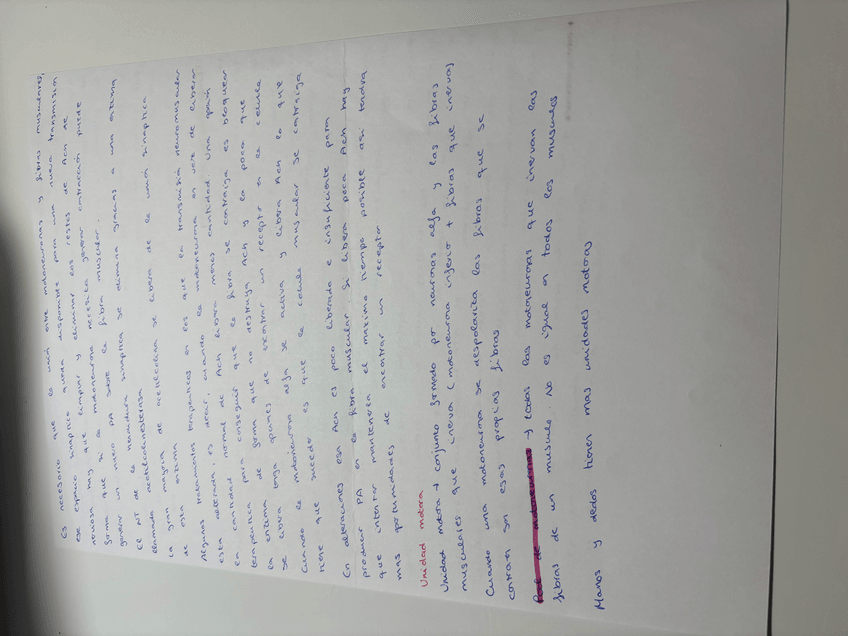 Es necesario que la unión entre motoneuronas y fibras musculares,
ese espacio sinaptico quede disponible para una nueva transmisión
nerviosa hay que limpiar y eliminar los restos de Ach de
forma que si la motoneurona necesita generar contracción puede
generar un nuevo PA sobre la fibra muscular.
El NT de la hendidura sinaptica se elimina gracias a una enzima
llamada acetilcolinesterasa
La gran mayoria de acetilcolina se libera de la unión sinaptica
de esta enzima
Algunos tratamientos terapeuticos en los que la transmisión neuromuscular
esta alterada, es decir, cuando la motoneurona en vez de liberar
la cantidad normal de Ach libera menos cantidad. Una opción
terapeutica para conseguir que la fibra se contraiga es bloquear
la enzima de forma que no destruya Ach y la poca que
se libera tenga opciones de encontrar un receptor en la celula
Cuando la motoneurona alfa se activa y libera Ach lo que
tiene que suceder es que la celula muscular se contraiga
En alteraciones esa Ach es poco liberada e insuficiente para
producir PA en la fibra muscular. Si libera poca Ach hay
que intentar mantenerla el maximo tiempo posible asi tendra
mas oportunidades de encontrar un receptor
Unidad motora
Unidad motora → conjunto formado por neuronas alfa y las fibras
musculares que inerva (motoneurona inferior + fibras que inerva)
Cuando una motoneurona se despolariza las fibras que se
contraen son esas propias fibras
Pool de motoneuronas → todas las motoneuronas que inervan las
fibras de un musculo. No es igual en todos los musculos
Manos y dedos tienen mas unidades motoras